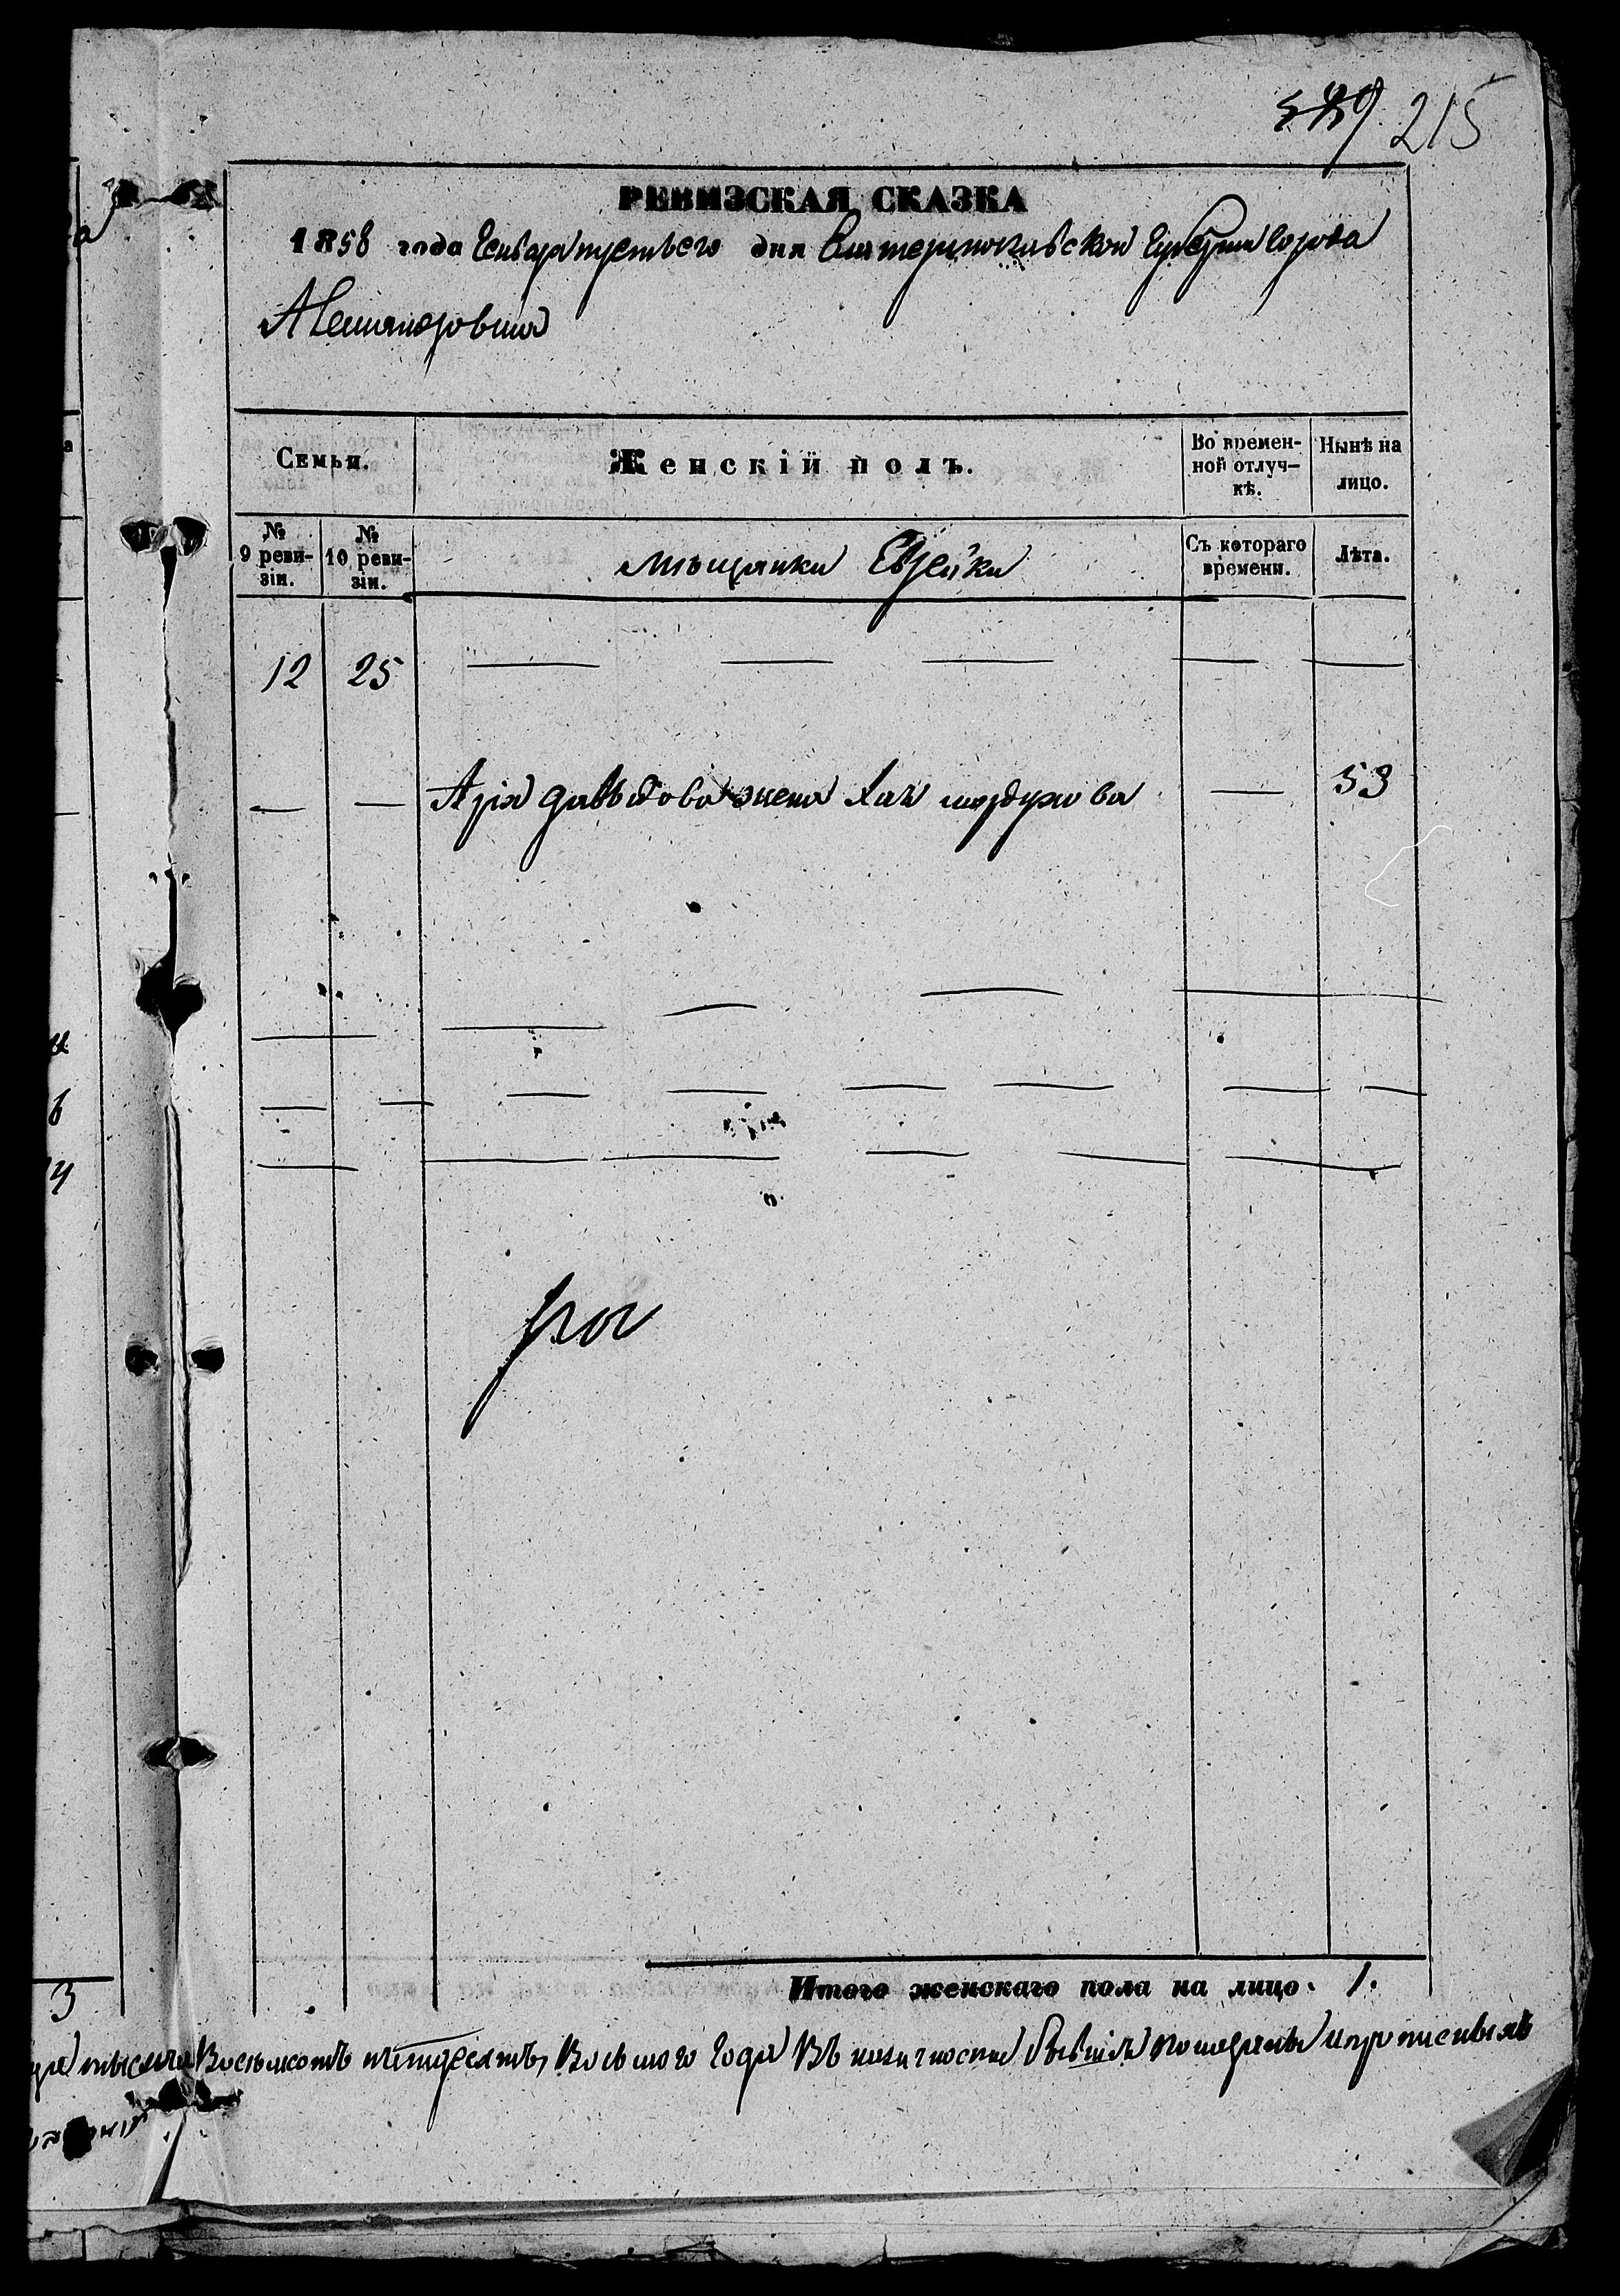 215
РЕВИЗСКАЯ СКАЗКА
1858 года Генваря третьего дня Екатеринославской Губернии Города
Александровска
Семьи.
Женскій полъ.
Во времен-
ной отлуч-
кѣ.
Нынѣ на
лицо.
№
9 реви-
зіи.
№
10 реви-
зіи.
мѣщанки Еврейки
Съ котораго
времени.
Лѣта.
12 25 — — — — —
— — Арія давыдова жена Хая мордухова — 53
Итого женскаго пола на лицо. 1.
3
тысяча Восемьсотъ пятидесятъ Восьмого Года Въ наличности бывшія поводаны и прописныхъ